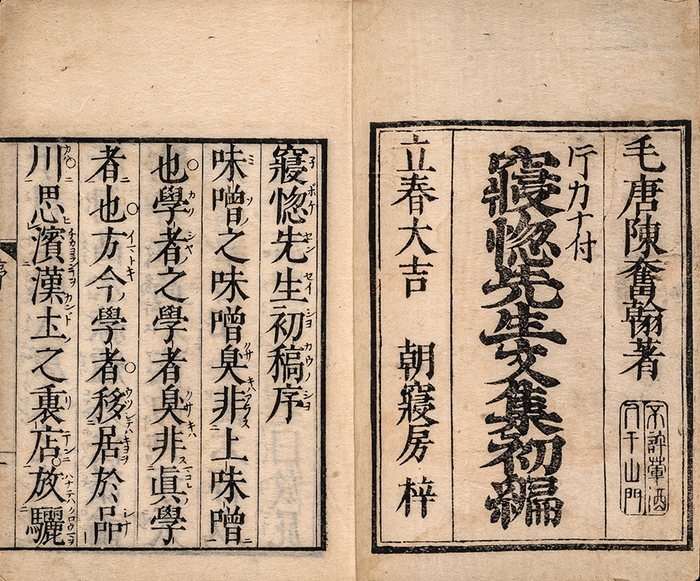 毛唐陳奮翰著
不許葷酒
入于山門
カナ付
寢惚先生文集初編
立春大吉 朝寢房 梓
寢惚先生初稿序
味噌之味噌臭非上味噌
也學者之學者臭非眞學
者也方今學者移居於品
川思濱漢土之裏店放驪